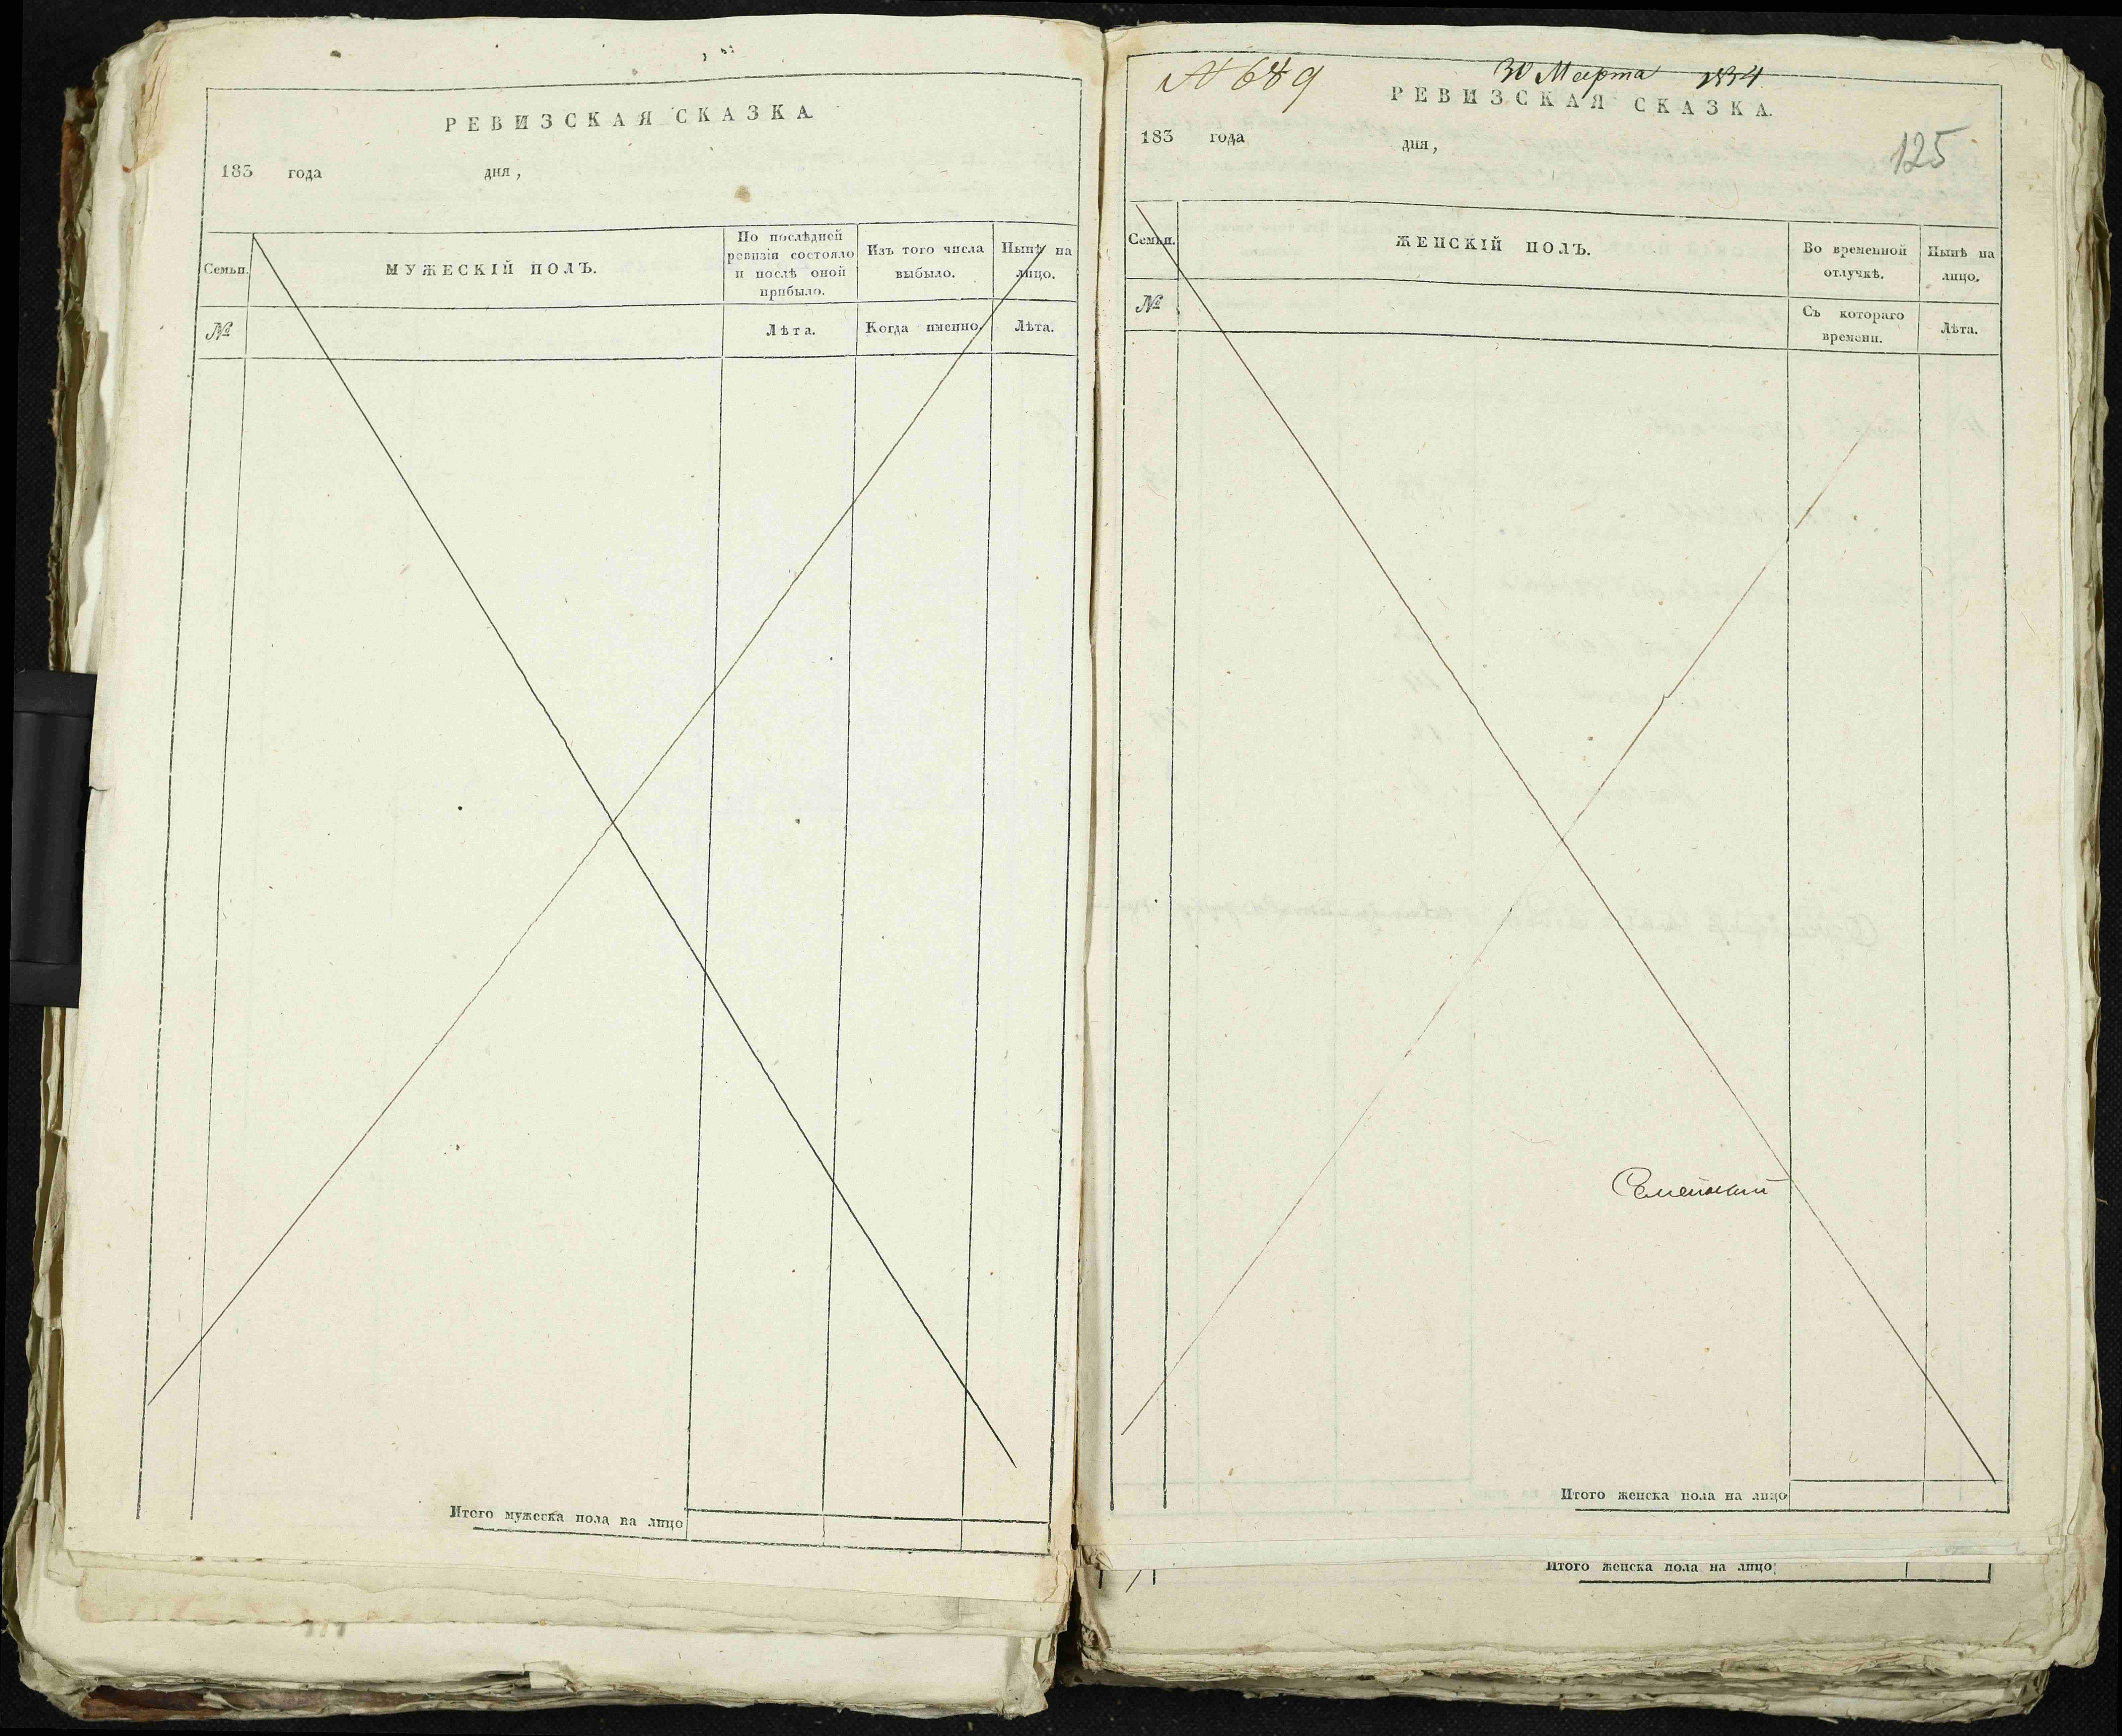 РЕВИЗСКАЯ СКАЗКА
183 года дня,
Семьи.
МУЖЕСКІЙ ПОЛЪ.
По послѣдней ревизіи состояло и послѣ оной прибыло.
Изъ того числа выбыло.
Нынѣ на лицо.
№
Лѣта.
Когда именно.
Лѣта.
Итого мужеска пола на лицо
№ 689
30 Марта 1834
РЕВИЗСКАЯ СКАЗКА.
183 года дня,
125
Семьи.
ЖЕНСКІЙ ПОЛЪ.
Во временной отлучкѣ.
Нынѣ на лицо.
№
Съ котораго времени.
Лѣта.
Итого женска пола на лицо
Итого женска пола на лицо